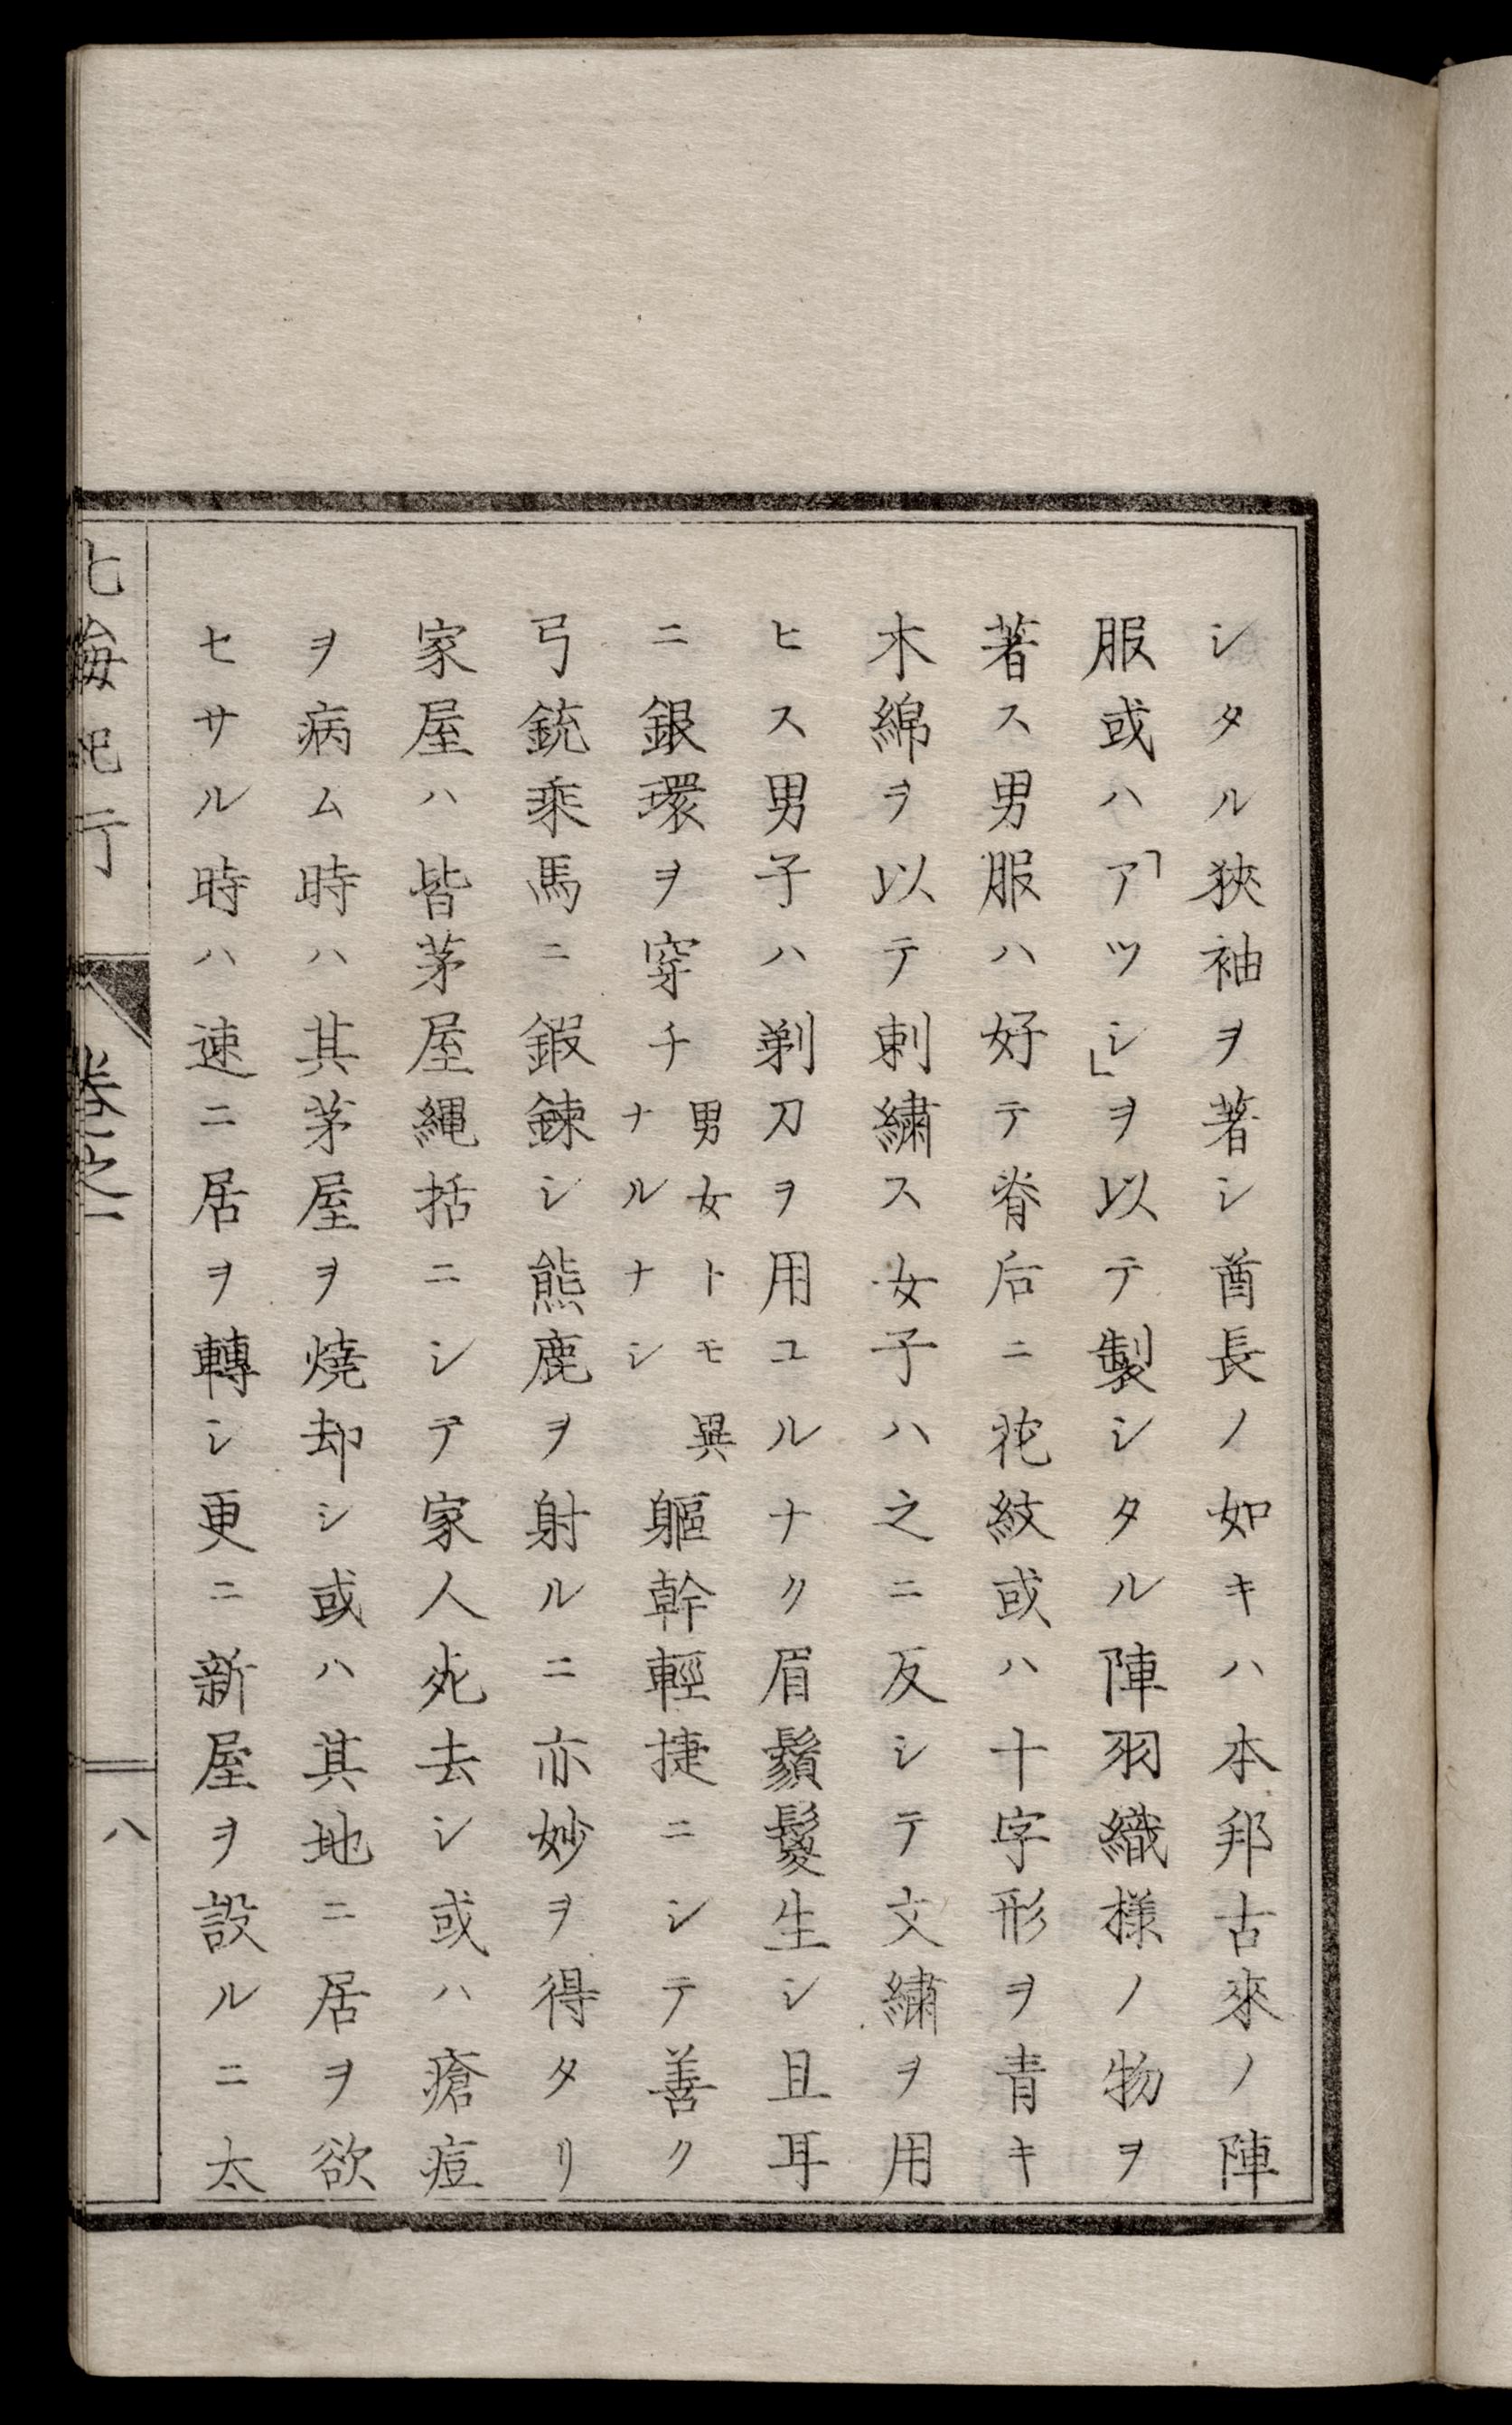 シタル狹袖ヲ著シ酋長ノ如キハ本邦古來ノ陣
服或ハ「アツシ」ヲ以テ製シタル陣羽織樣ノ物ヲ
著ス男服ハ好テ脊后ニ花紋或ハ十字形ヲ青キ
木綿ヲ以テ刺繍ス女子ハ之ニ反シテ文繍ヲ用
ヒス男子ハ剃刀ヲ用ユルナク眉鬚鬘生シ且耳
ニ銀環ヲ穿チ男女トモ異ナルナシ軀幹輕捷ニシテ善ク
弓銃乘馬ニ鍜鍊シ熊鹿ヲ射ルニ亦妙ヲ得タリ
家屋ハ皆茅屋縄括ニシテ家人死去シ或ハ瘡痘
ヲ病ム時ハ其茅屋ヲ燒却シ或ハ其地ニ居ヲ欲
セサル時ハ速ニ居ヲ轉シ更ニ新屋ヲ設ルニ太
北海紀行 卷之一 八